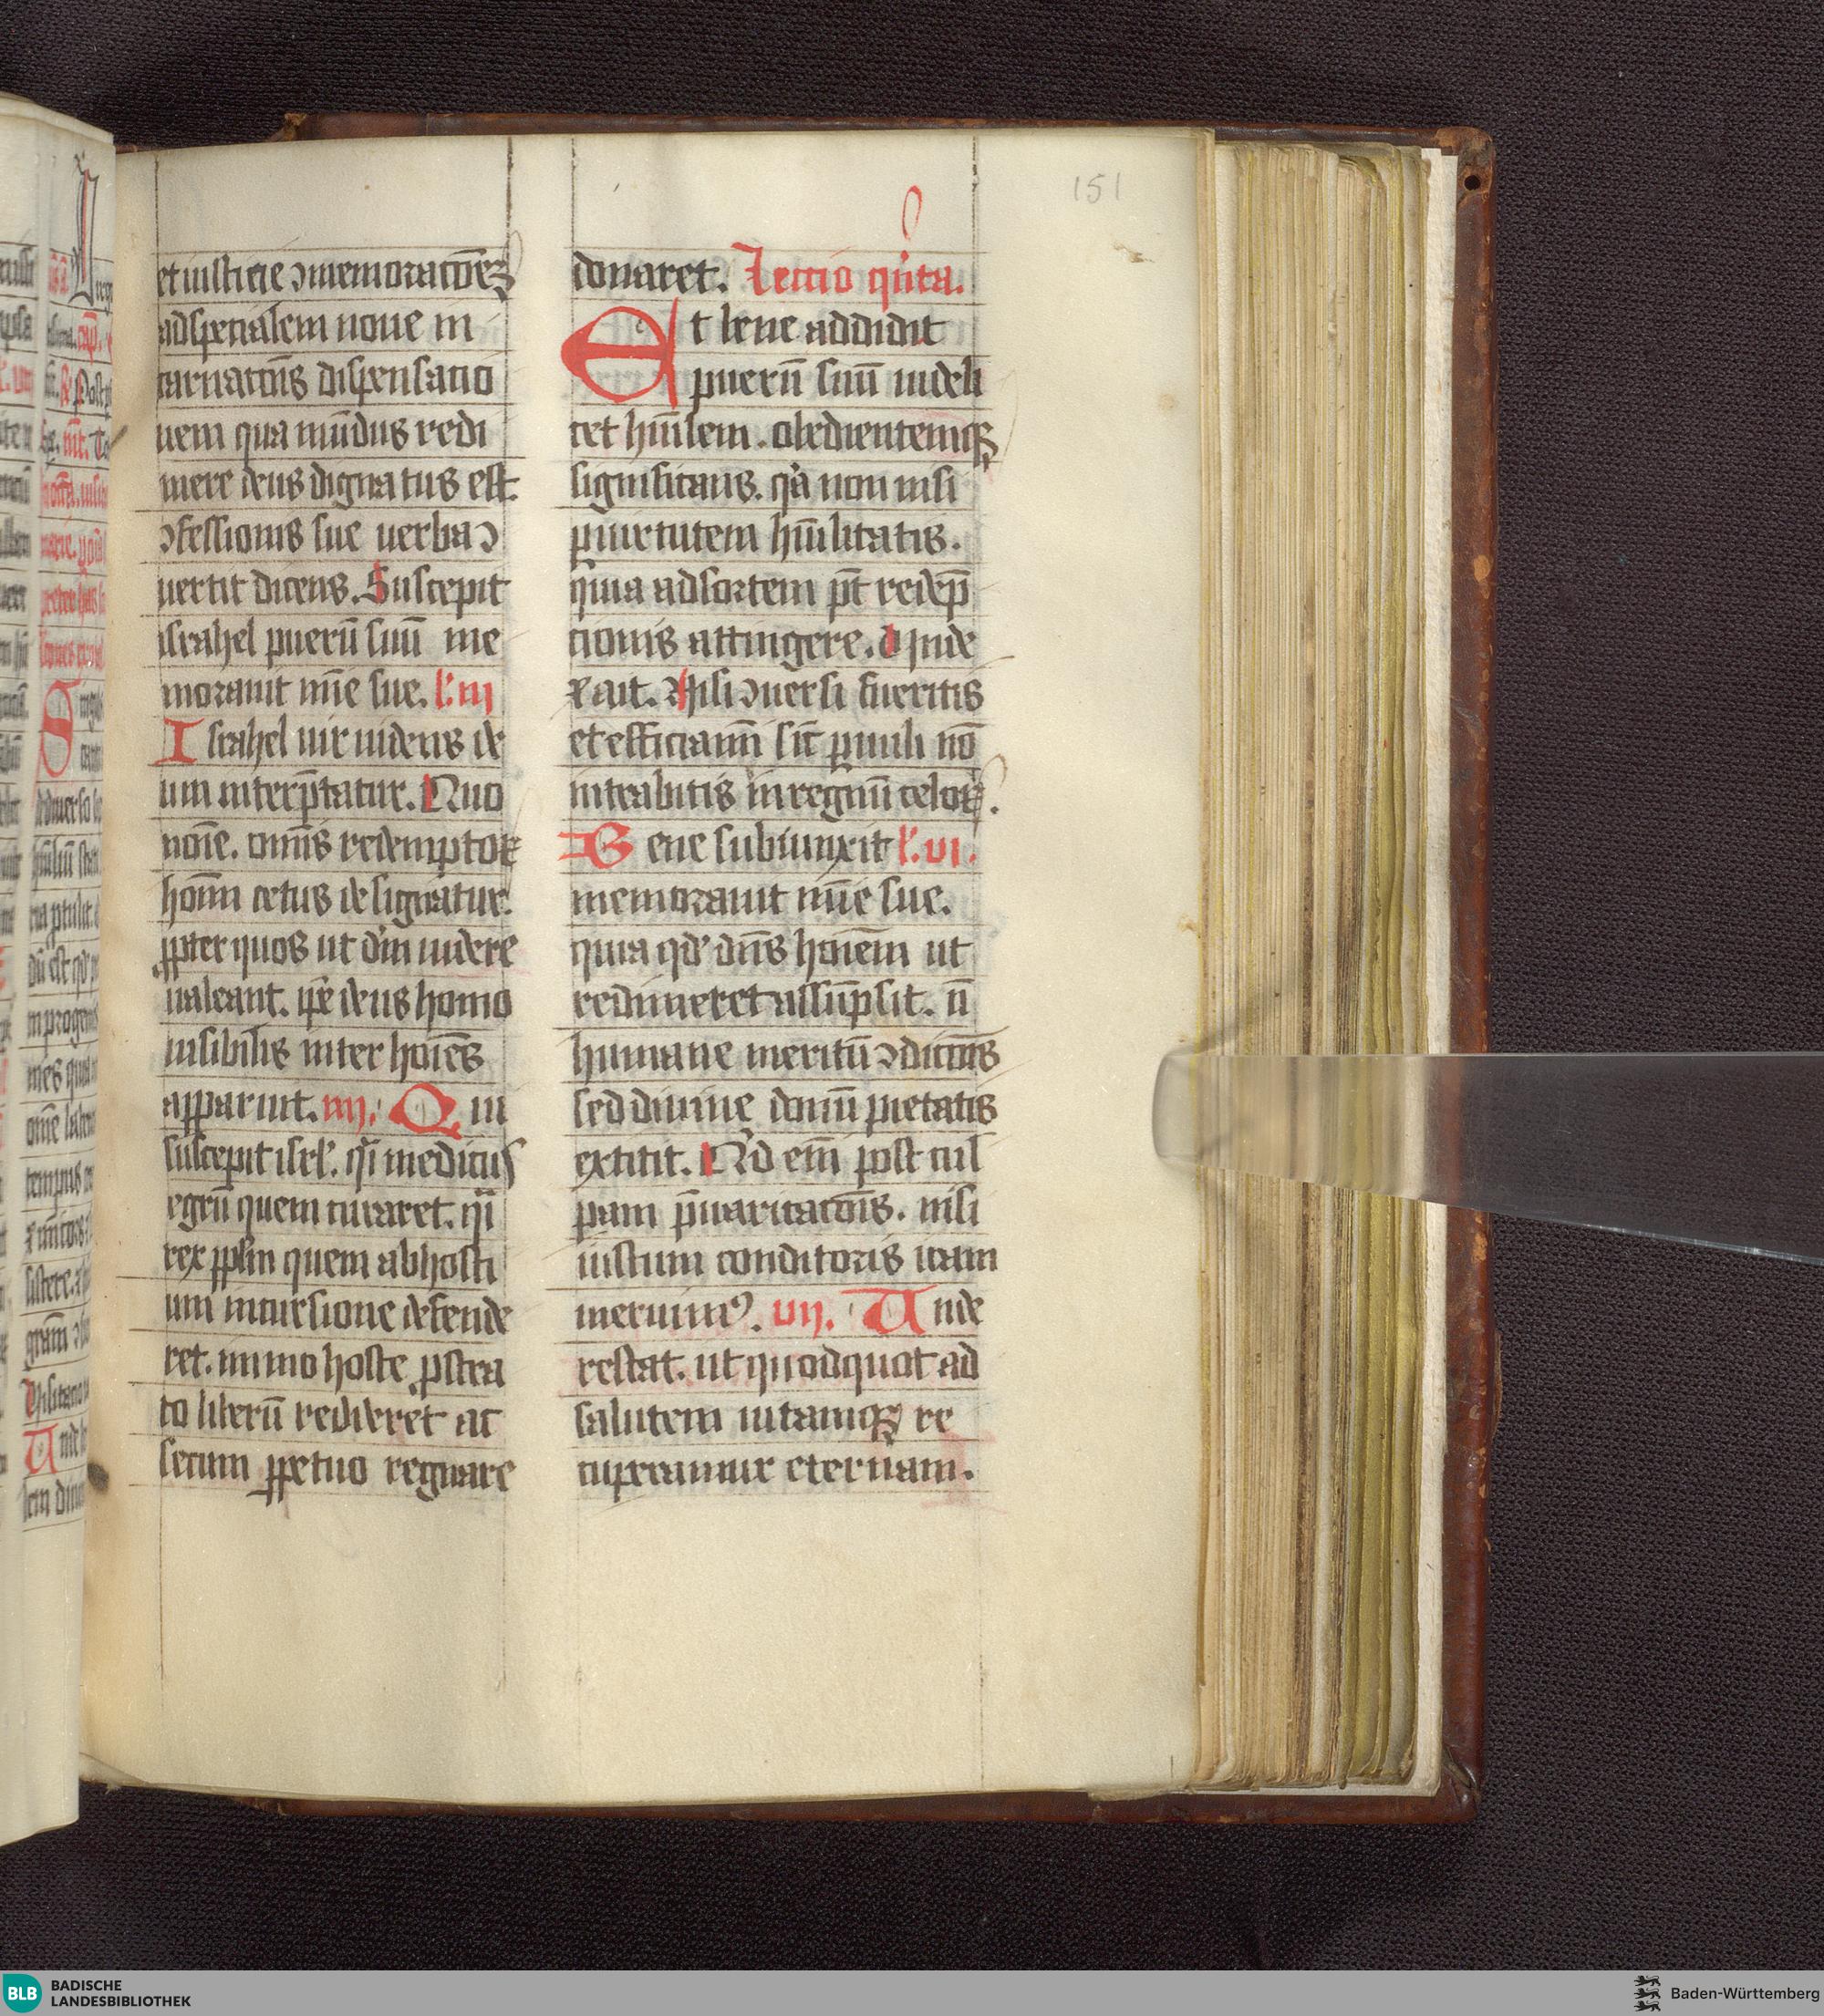 151
et iusticie ↄmemoratōeꝫ
ad spetialem noue in
carnatōis dispensatio
nem qua mūdus redi
mere deus dignatus est.
ↄfessionis sue uerba ↄ
uertit dicens. Suscepit
israhel puerū suū me
moratus mīe sue. l'. iii
Israhel uir uidens de
um interp̄tatur. Quo
noīe. omīs redemptoꝝ
hoīm cetus designatur.
ꝓpter quos ut dm̄ uidere
ualeant. ip̄e deus homo
uisibilis inter hoīes
apparuit. iiij. Qui
suscepit isrl'. qͥi medicus
egrū quem curaret. qͥi
rex pplm̄ quem ab hosti
um incursione defende
ret. immo hoste ꝓstra
to liberū redderet ac
secum ꝑpetuo regnare
donaret. Lectio qͥnta.
Et bene addidit
puerū suū uideli
cet hūilem. obedientemqꝫ
significans. qͥa non nisi
ꝑ uirtutem hūilitatis.
quia ad sortem p̄t redēp
tionis attingere. Unde
xͤ ait. Nisi ↄuersi fueritis
et efficiamī sic̄ paruuli nō
intrabitis in regnū celoꝝ.
Bene subiunxit l'. vi.
memoratus mīe sue.
quia qd' dn̄s hoīem ut
redimeret assūpsit. n̄
humane meritū ↄdic̄ois
sed diuine donū pietatis
extitit. Qͥd em̄ post cul
pam p̄uaricatōis. nisi
iustam conditoris iram
meruimꝰ. vij. Unde
restat. ut quodquot ad
salutem uitamqꝫ re
cuperamur eternam.
BLB BADISCHE
LANDESBIBLIOTHEK
Baden-Württemberg